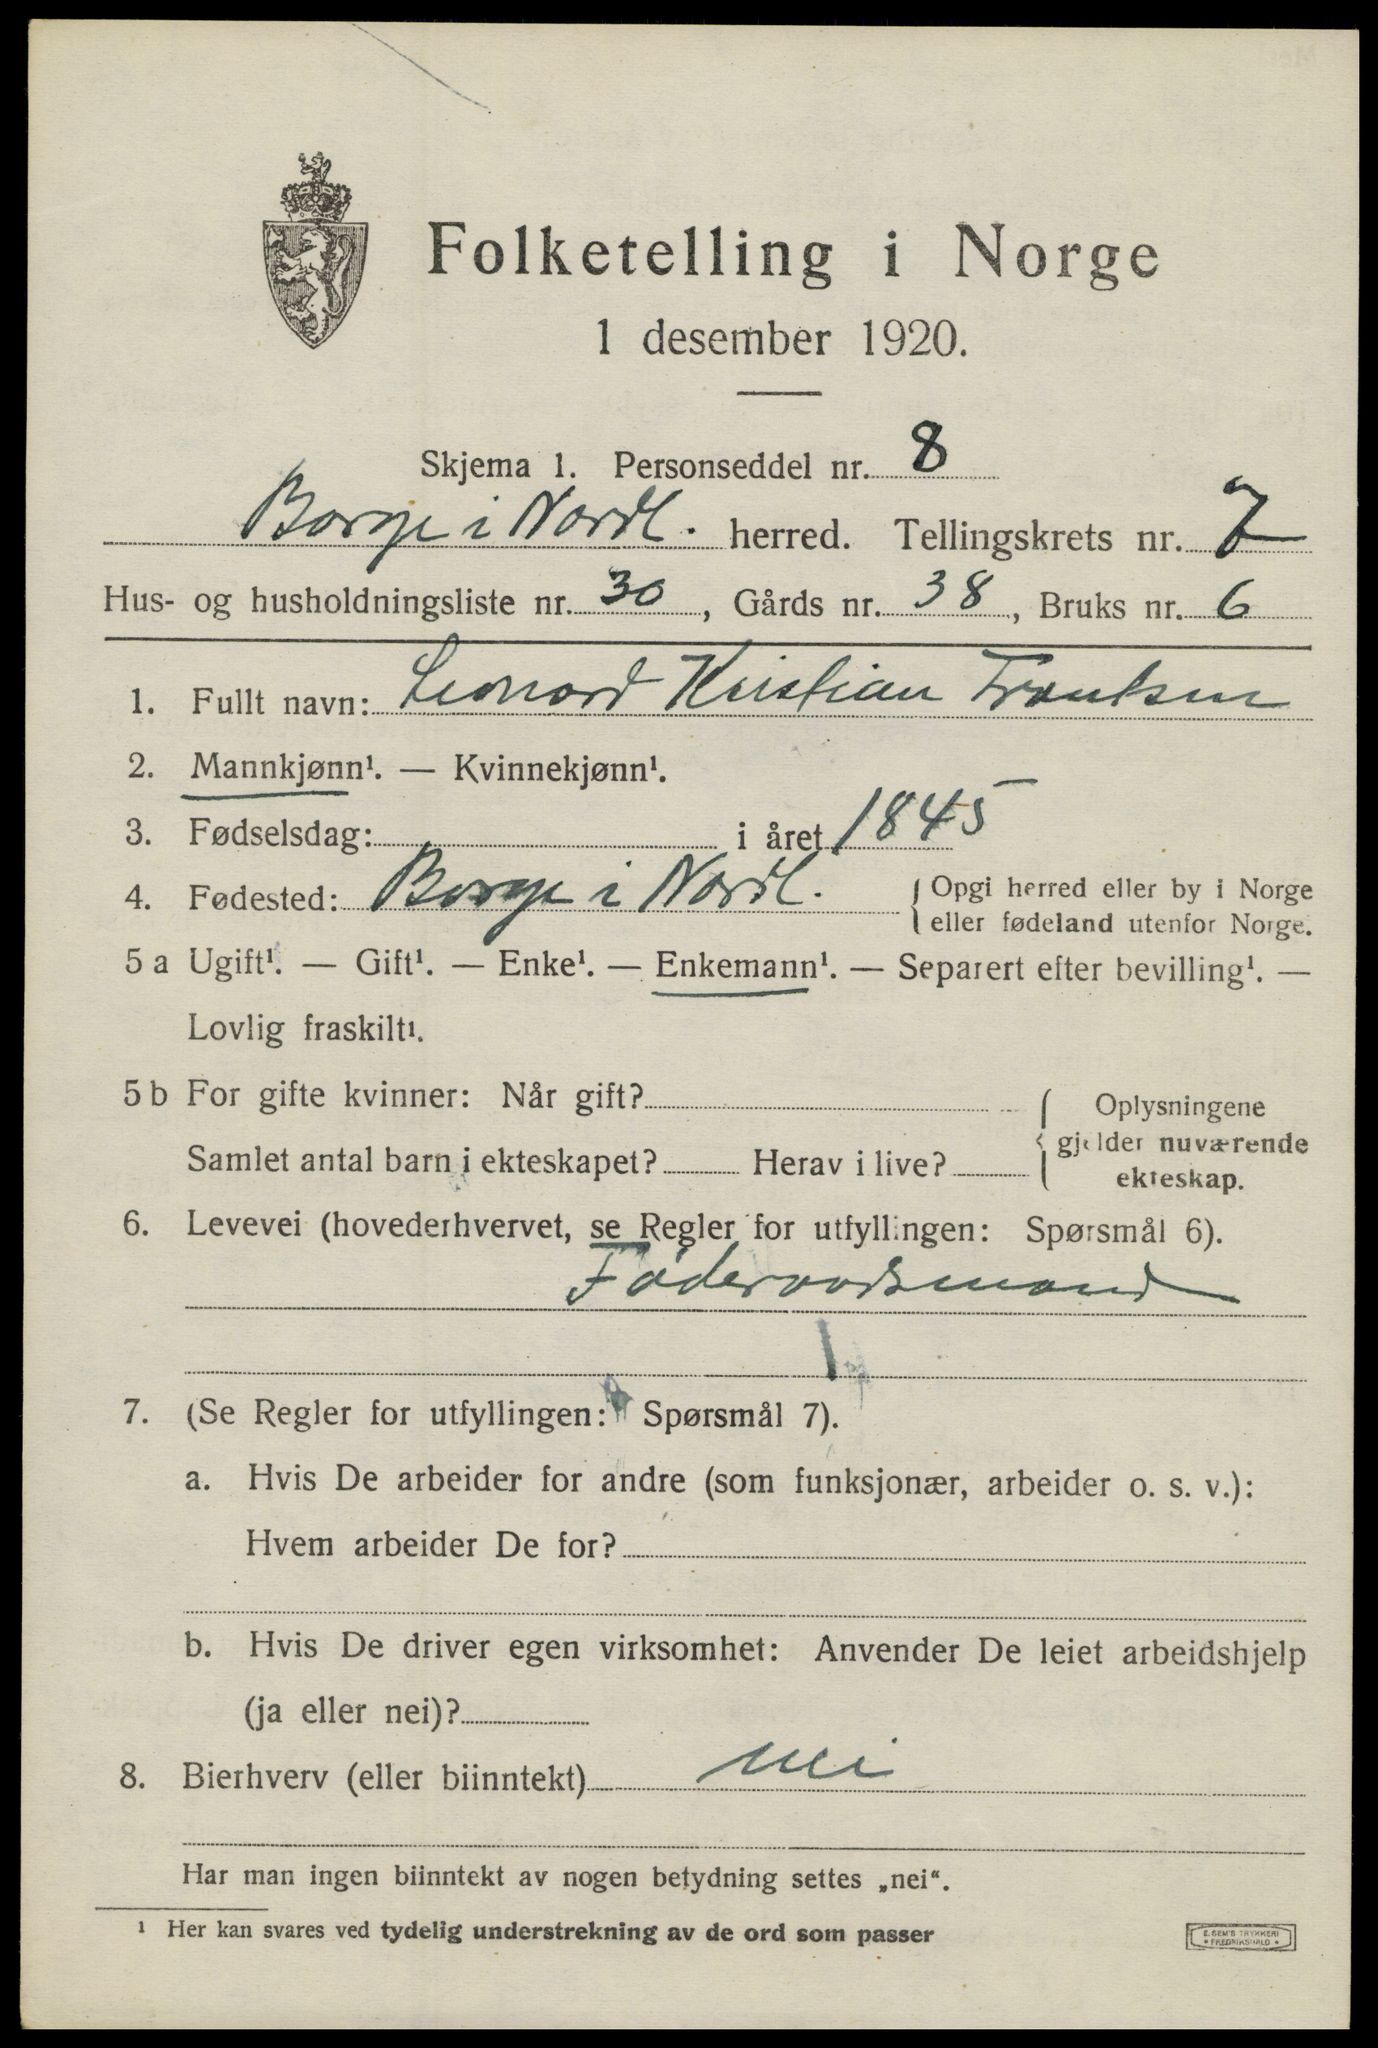 Folketelling i Norge
1 desember 1920.
Skjema 1. Personseddel nr. 8
Borge i Nordl. herred. Tellingskrets nr. 7
Hus- og husholdningsliste nr. 30, Gårds nr. 38, Bruks nr. 6
1. Fullt navn: Leonard Kristian Frantsen
2. Mannkjønn¹. — Kvinnekjønn¹.
3. Fødselsdag: i året 1845
4. Fødested: Borge i Nordl. { Opgi herred eller by i Norge
eller fødeland utenfor Norge.
5 a Ugift¹. — Gift¹. — Enke¹. — Enkemann¹. — Separert efter bevilling¹. —
Lovlig fraskilt¹.
5 b For gifte kvinner: Når gift? { Oplysningene
gjelder nuværende
Samlet antal barn i ekteskapet? Herav i live?
ekteskap.
6. Levevei (hovederhvervet, se Regler for utfyllingen: Spørsmål 6).
Føderaadsmand
1
7. (Se Regler for utfyllingen: Spørsmål 7).
a. Hvis De arbeider for andre (som funksjonær, arbeider o. s. v.):
Hvem arbeider De for?
b. Hvis De driver egen virksomhet: Anvender De leiet arbeidshjelp
(ja eller nei)?
8. Bierhverv (eller biinntekt) nei
Har man ingen biinntekt av nogen betydning settes „nei“.
¹ Her kan svares ved tydelig understrekning av de ord som passer
E. SEM'S TRYKKERI
• FREDRIKSHALD •